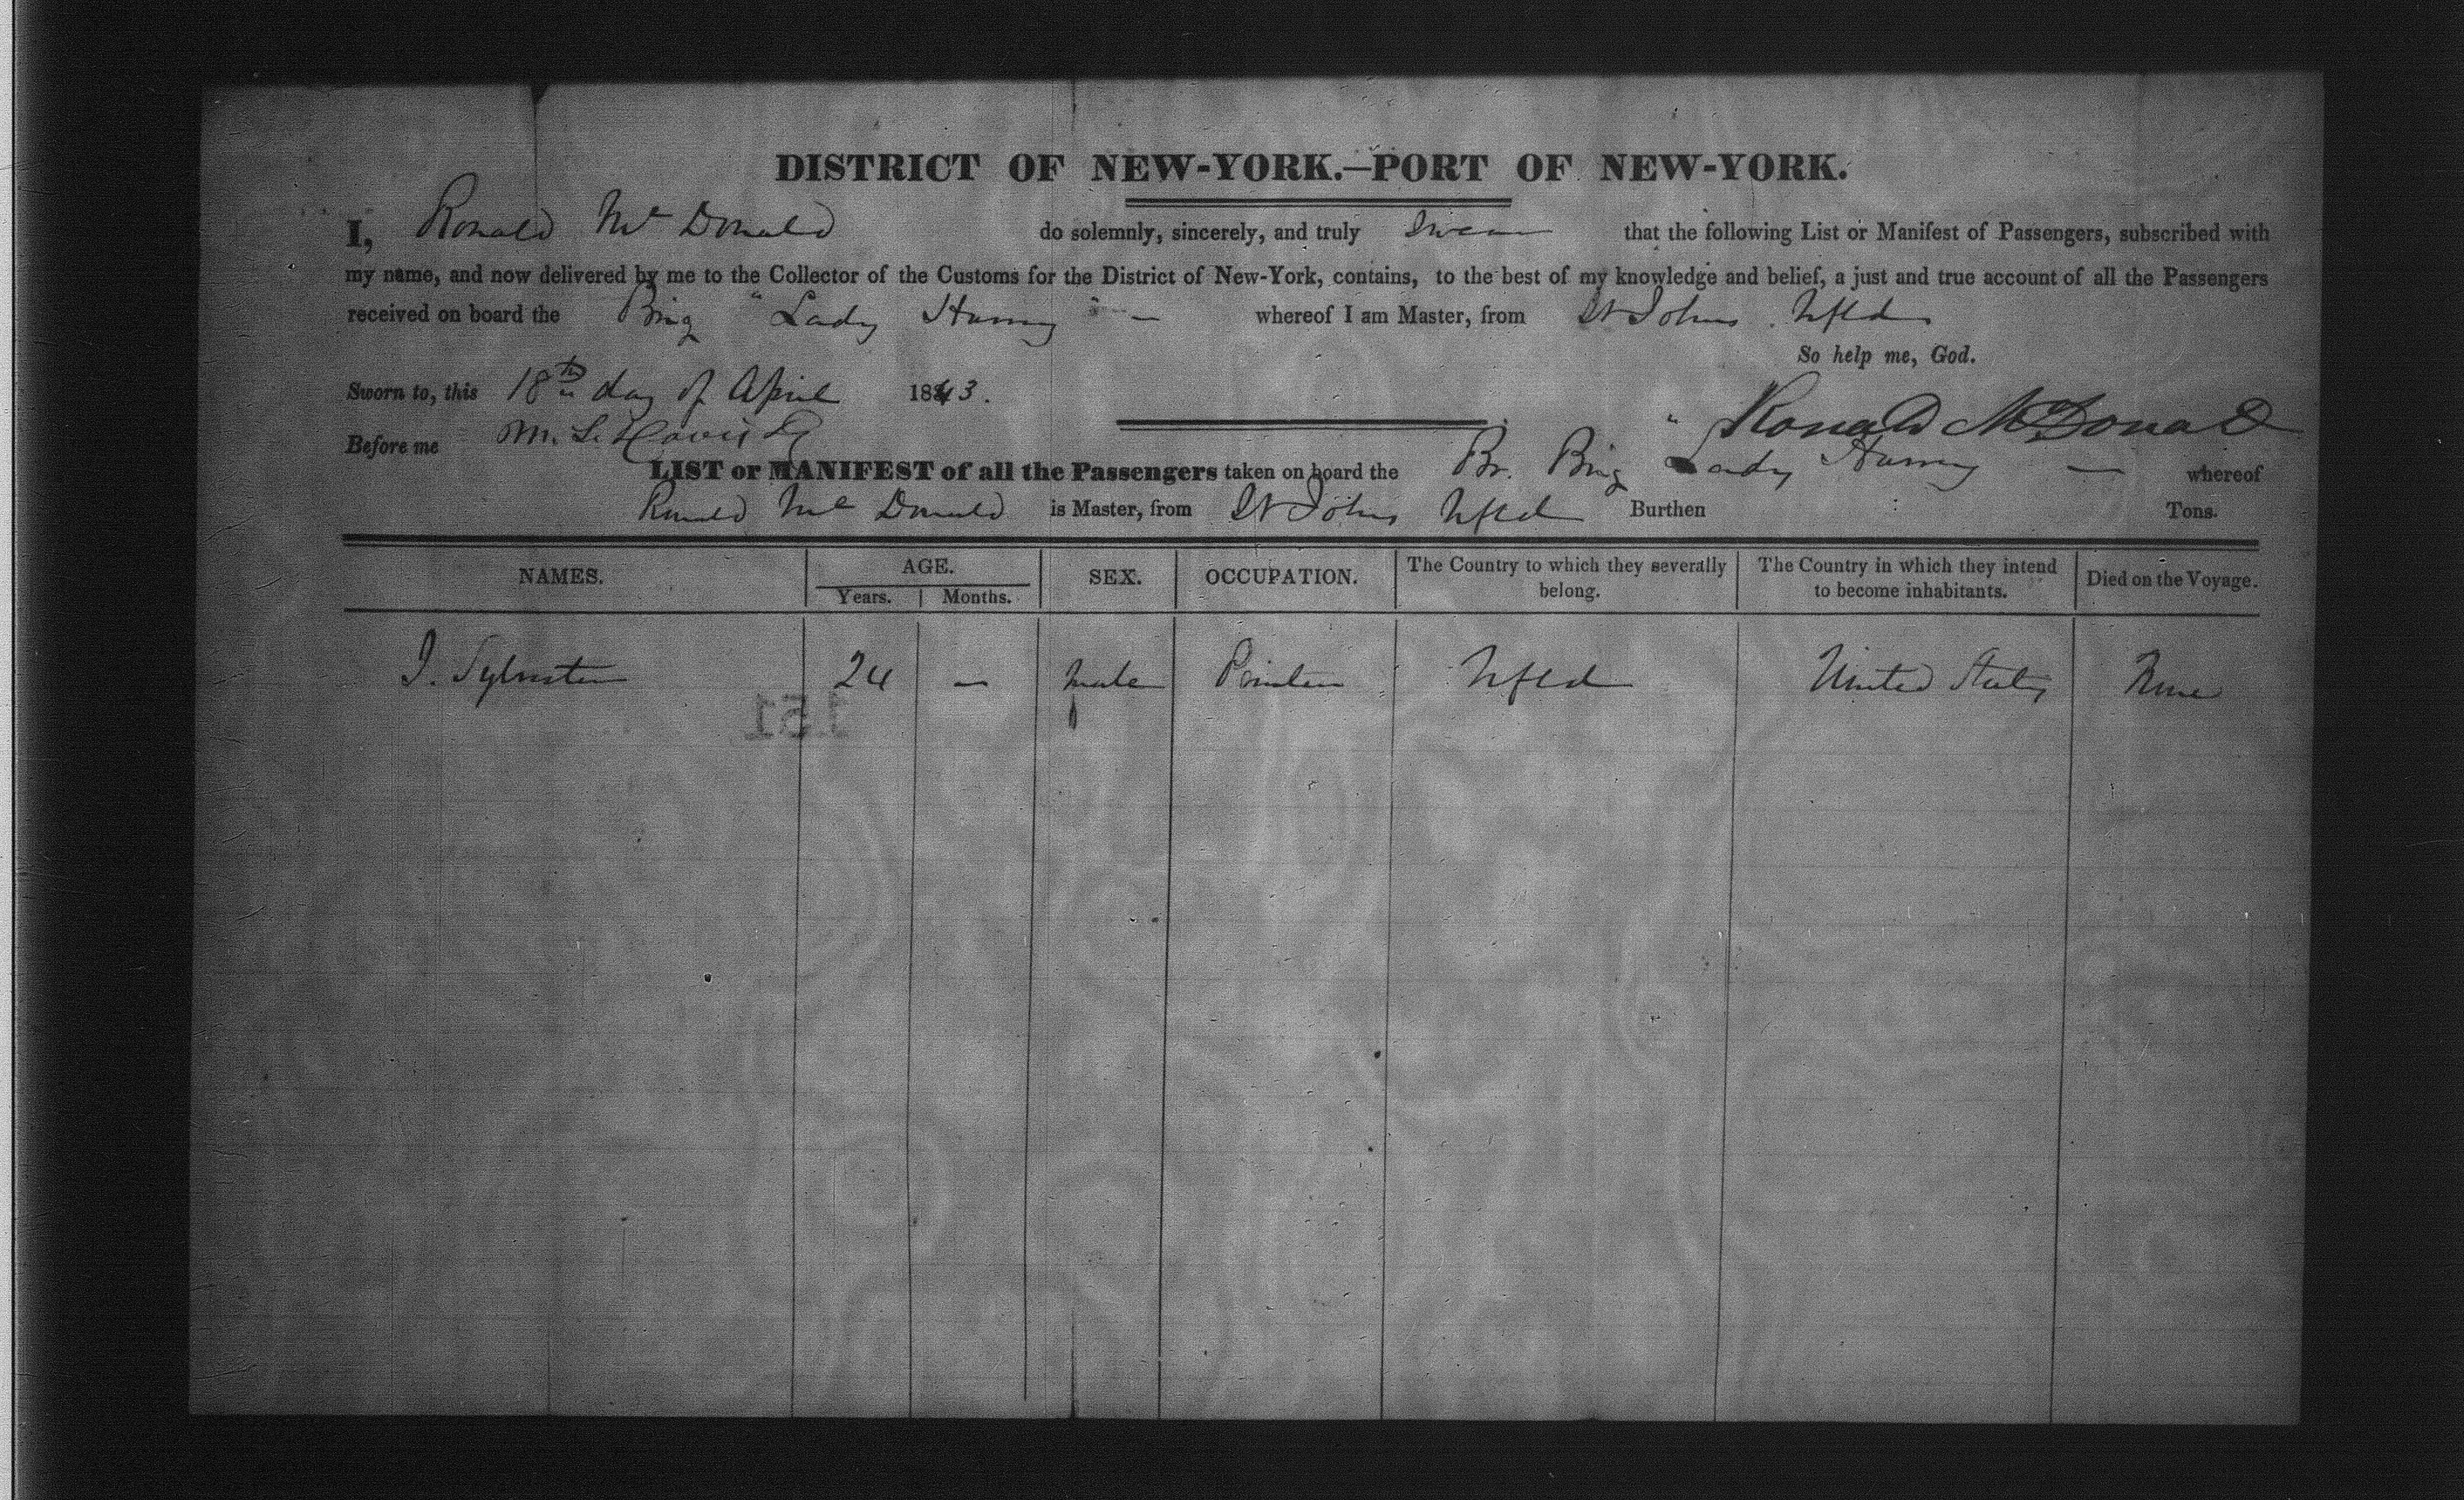 DISTRICT OF NEW-YORK.—PORT OF NEW-YORK.
I, Ronald Mc Donald do solemnly, sincerely, and truly Swear that the following List or Manifest of Passengers, subscribed with
my name, and now delivered by me to the Collector of the Customs for the District of New-York, contains, to the best of my knowledge and belief, a just and true account of all the Passengers
received on board the Brig "Lady Harvey" — whereof I am Master, from St Johns Nfld
So help me, God.
Sworn to, this 18th day of April 1843.
Ronald McDonald
Before me
LIST or MANIFEST of all the Passengers taken on board the Br. Brig Lady Harvey — whereof
Ronald Mc Donald is Master, from St Johns Nfld Burthen Tons.
NAMES. AGE. SEX. OCCUPATION. The Country to which they severally belong. The Country in which they intend to become inhabitants. Died on the Voyage.
Years. Months.
J. Sylvester 24 — male Printer Nfld United States None
151